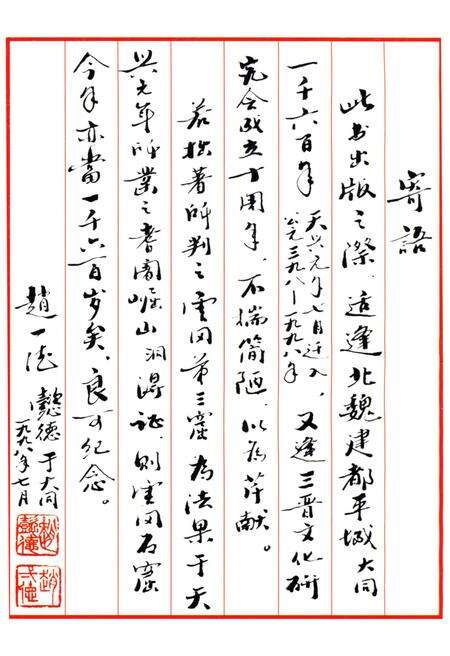 寄語
此书出版之際、适逢北魏建都平城大同
一千六百年
天兴元年七月迁入,
公元三九八—一九九八年
又逢三晋文化研
究会成立十周年、不揣简陋,以为芹献。
若拙著所判之雲冈第三窟为法果于天
兴元年所業之耆闍崛山洞得证,则雲冈石窟
今年亦當一千六百岁矣,良可纪念。
趙一德
懿德于大同
一九九八年七月